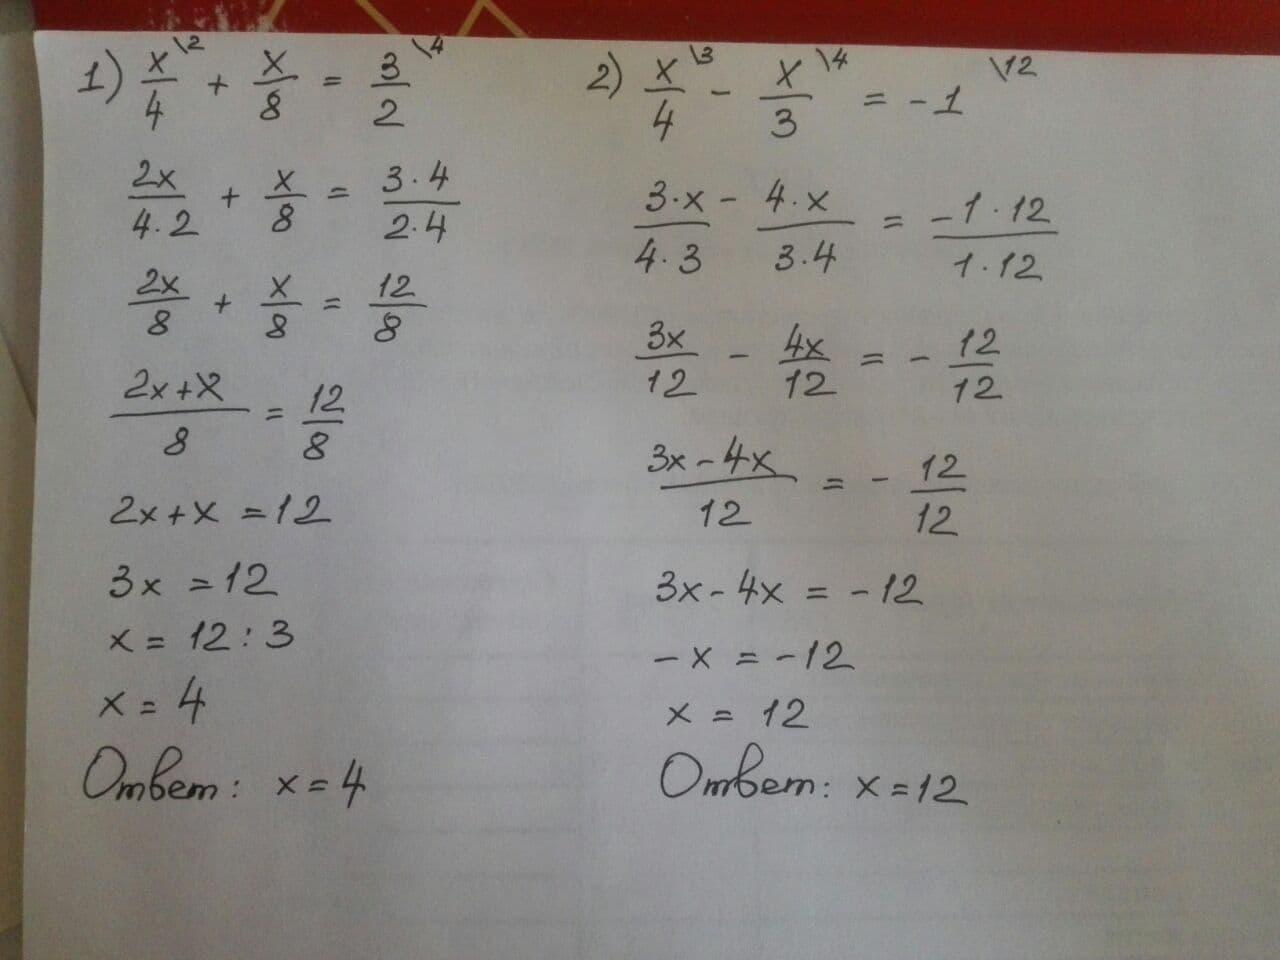 1) x/4 \2 + x/8 = 3/2 \4
2x/4·2 + x/8 = 3·4/2·4
2x/8 + x/8 = 12/8
2x+x/8 = 12/8
2x+x = 12
3x = 12
x = 12 : 3
x = 4
Ответ: x = 4
2) x/4 \3 - x/3 \4 = -1 \12
3·x/4·3 - 4·x/3·4 = -1·12/1·12
3x/12 - 4x/12 = - 12/12
3x-4x/12 = - 12/12
3x-4x = -12
-x = -12
x = 12
Ответ: x = 12